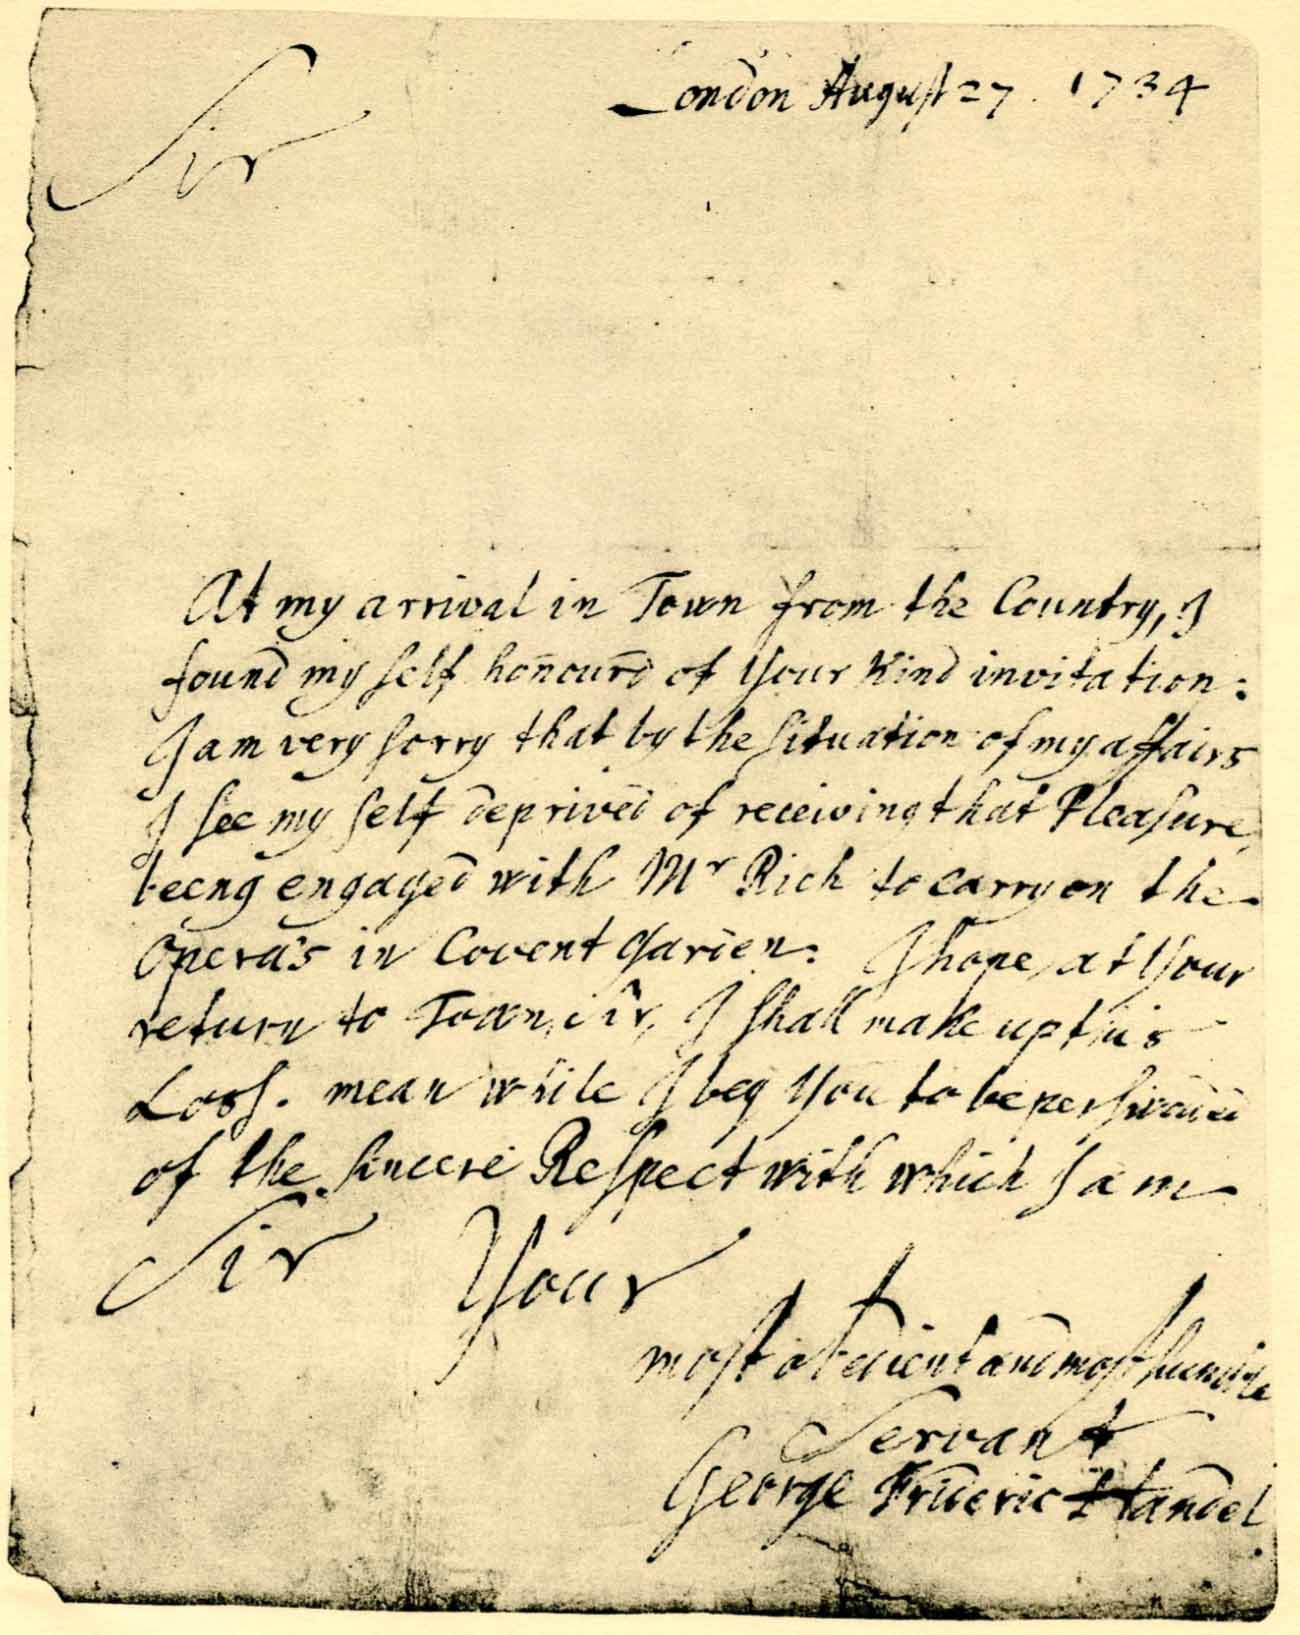 London August 27. 1734
Sir
At my arrival in Town from the Country, I
found my self honour'd of Your kind invitation:
I am very sorry that by the situation of my affairs
I see my self deprived of receiving that Pleasure,
beeng engaged with Mr Rich to carry on the
Opera's in Covent Garden. I hope, at Your
return to Town, Sir, I shall make up this
Loss. mean while I beg You to be perswaded
of the sincere Respect with which I am
Sir Your
most obedient and most humble
Servant
George Frideric Handel